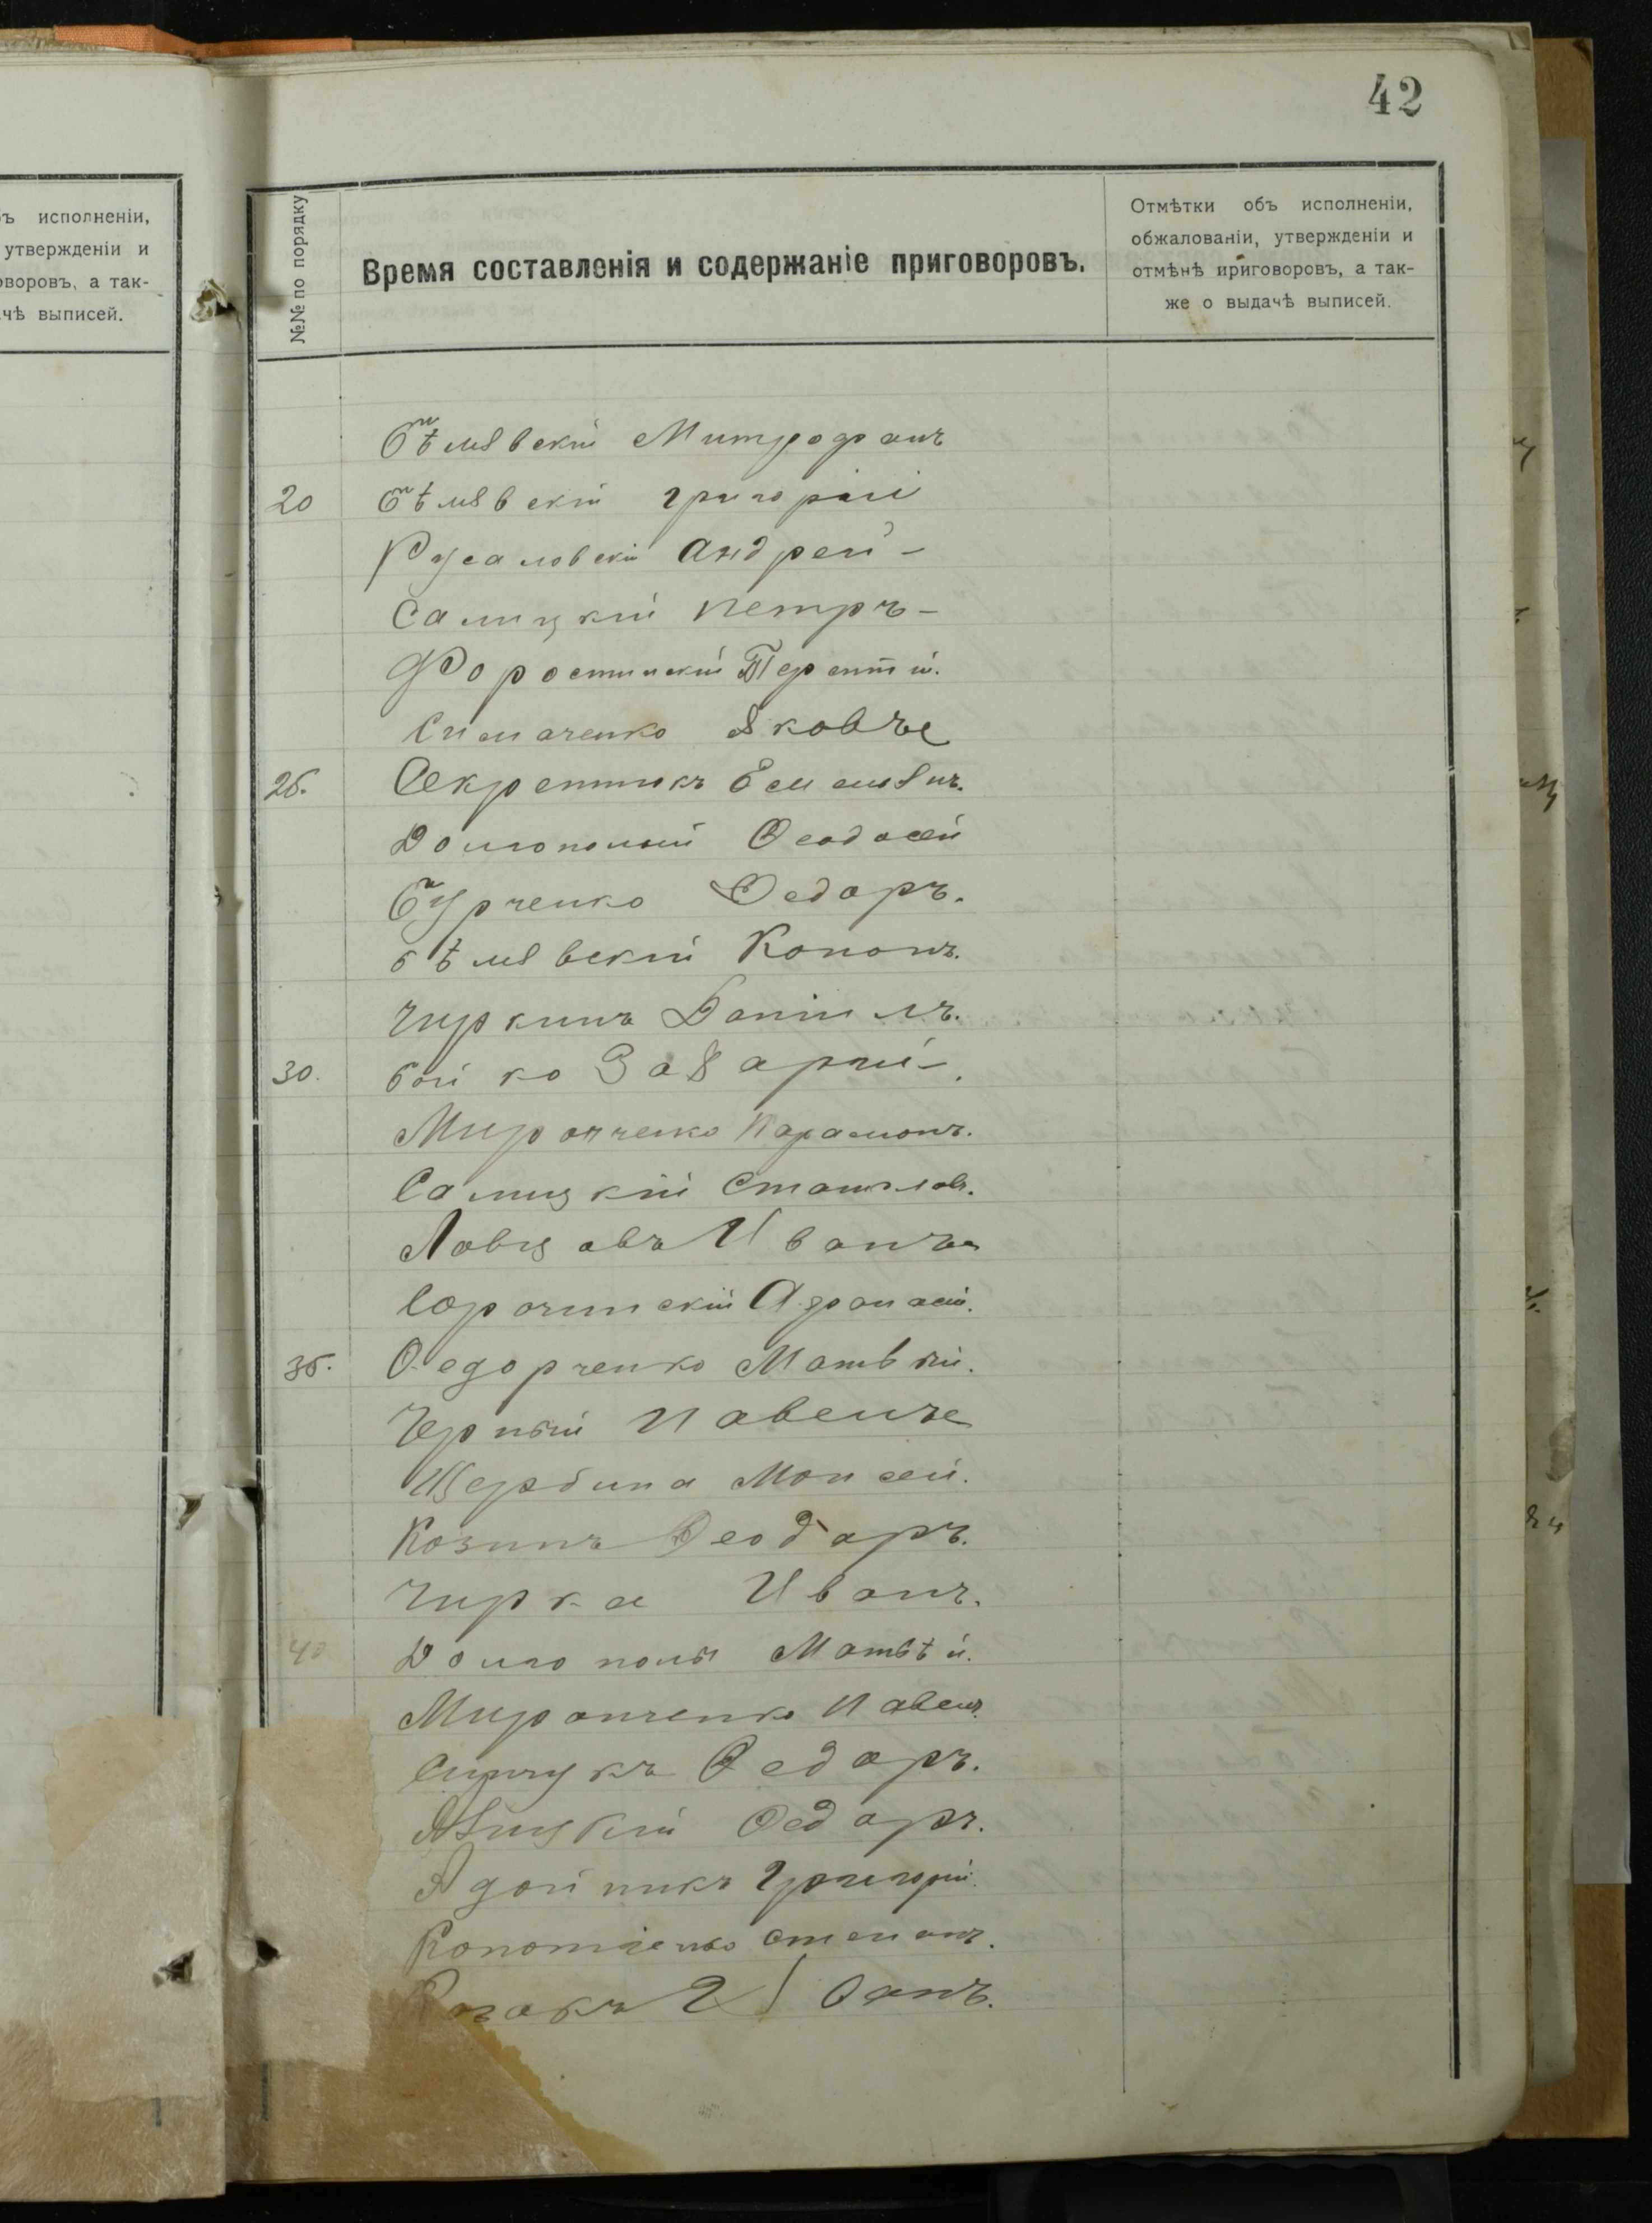 42
ъ исполненіи,
утвержденіи и
оворовъ, а так-
чѣ выписей.
№№ по порядку
Время составленія и содержаніе приговоровъ.
Отмѣтки объ исполненіи,
обжалованіи, утвержденіи и
отмѣнѣ приговоровъ, а так-
же о выдачѣ выписей.
Бѣлявскій Митрофанъ
20 Бѣлявскій Григорій
Русаловскій Андрей -
Салицкій Петръ -
Форостинскій Терентій.
Симаченко Яковъ
25. Секретникъ Емельянъ.
Долгополый Ѳеодосій
Бурченко Ѳедоръ.
Бѣлявскій Кононъ.
Чиркинъ Даніилъ.
30. Бойко Захарій -.
Миронченко Парамонъ.
Салицкій Станиславъ.
Ловцовъ Иванъ
Сорочинскій Афанасій.
35. Ѳедорченко Матвѣй.
Черный Павелъ
Щербина Моисей.
Козинъ Ѳеодоръ.
Чирка Иванъ.
40 Долгополый Матвѣй.
Миронченко Павелъ.
Ѳедоръ.
Ѳедоръ.
Григорій.
Кононченко Степанъ.
Козакъ Иванъ.